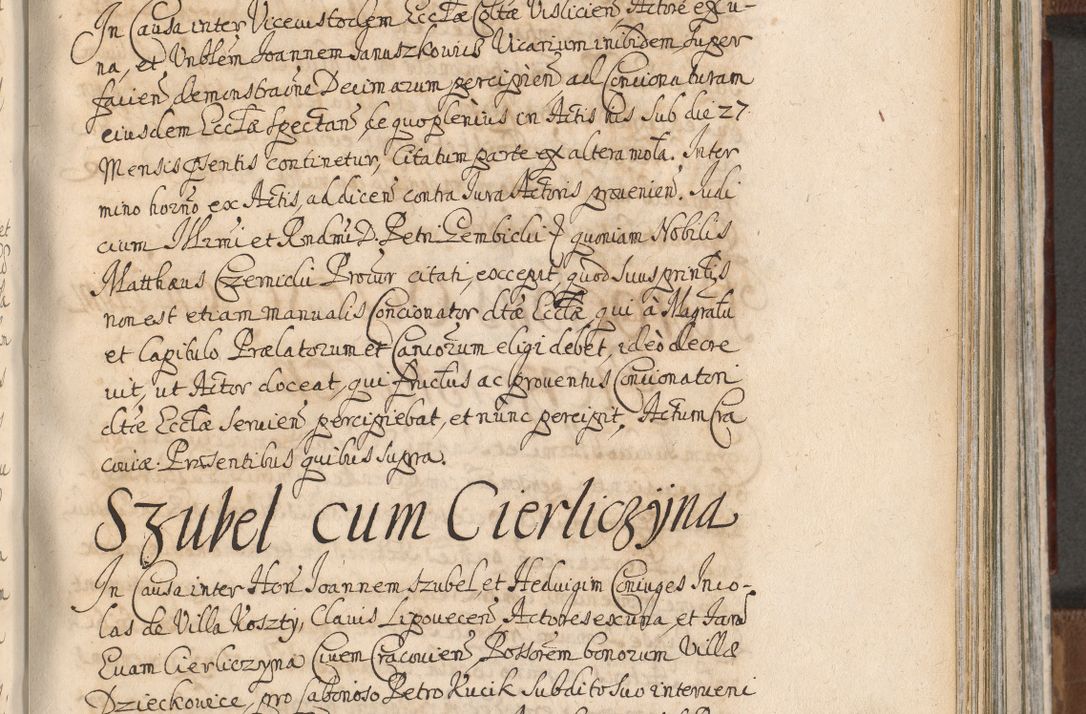 In Causa inter Vicecustodem Eccłæ Cołtæ Visliciens Actore ex u-
na, et Vnblem Joannem Januszkowicz Vicarium inibidem super
facien demonstraõne Decimarum percipien ad Concionaturam
eiusdem Eccłæ spectan, de quo plenius in Actis his sub die 27
Mensis pñtis continetur, Citatum parte ex altera mota. Inter
mino horno ex Actis, ad dicen contra Jura Actoris provenien. Judi
cium Illrmi et Rndmi D. Petri Gembicki quoniam Nobilis
Matthæus Czernicki Procur citati, excepit, quod suus printlis
non est etiam manualis Concionator dtæ Eccłæ, qui à Magratu
et Capitulo Prælatorum et Canicorum eligi debet, ideò decre
vit, ut Actor doceat, qui fructus ac proventus Concionatori
dtæ Eccłæ servien percipiebat, et nunc percipit. Actum Cra
coviæ. Præsentibus quibus supra.
Szubel cum Cierliczyna
In Causa inter Hon Joannem Szubel, et Hedvigim Coniuges Inco-
las de Villa Koszty, Clavis Lipovecen Actores ex una, et Fam
Evam Cierliczyna Civem Cracovien, Possorem bonorum Villæ
Dzieckowice, pro laborioso Petro Kucik subdito suo interveni